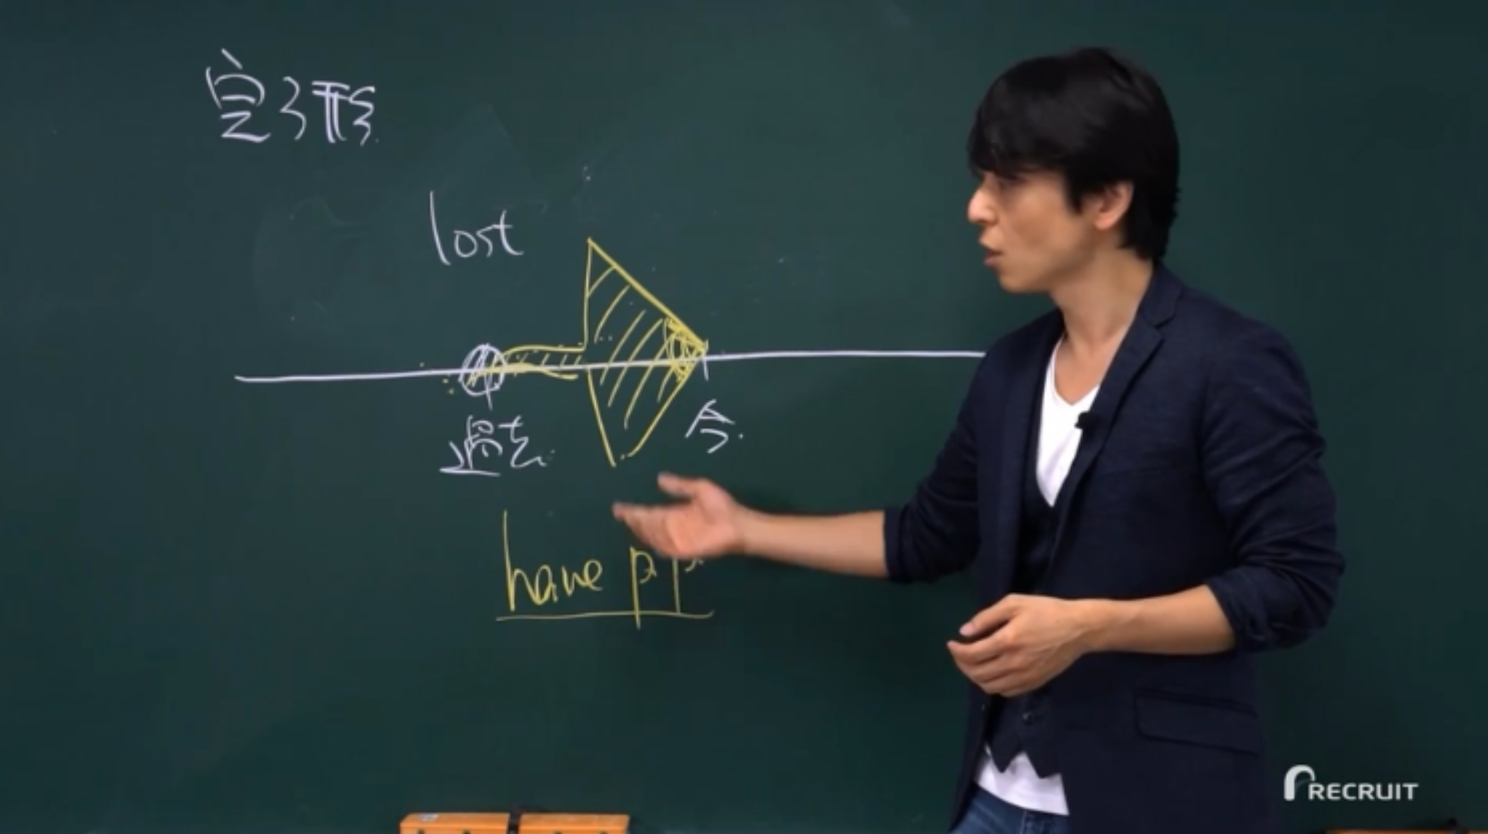 完了形
lost
過去
今
have p.p.
RECRUIT